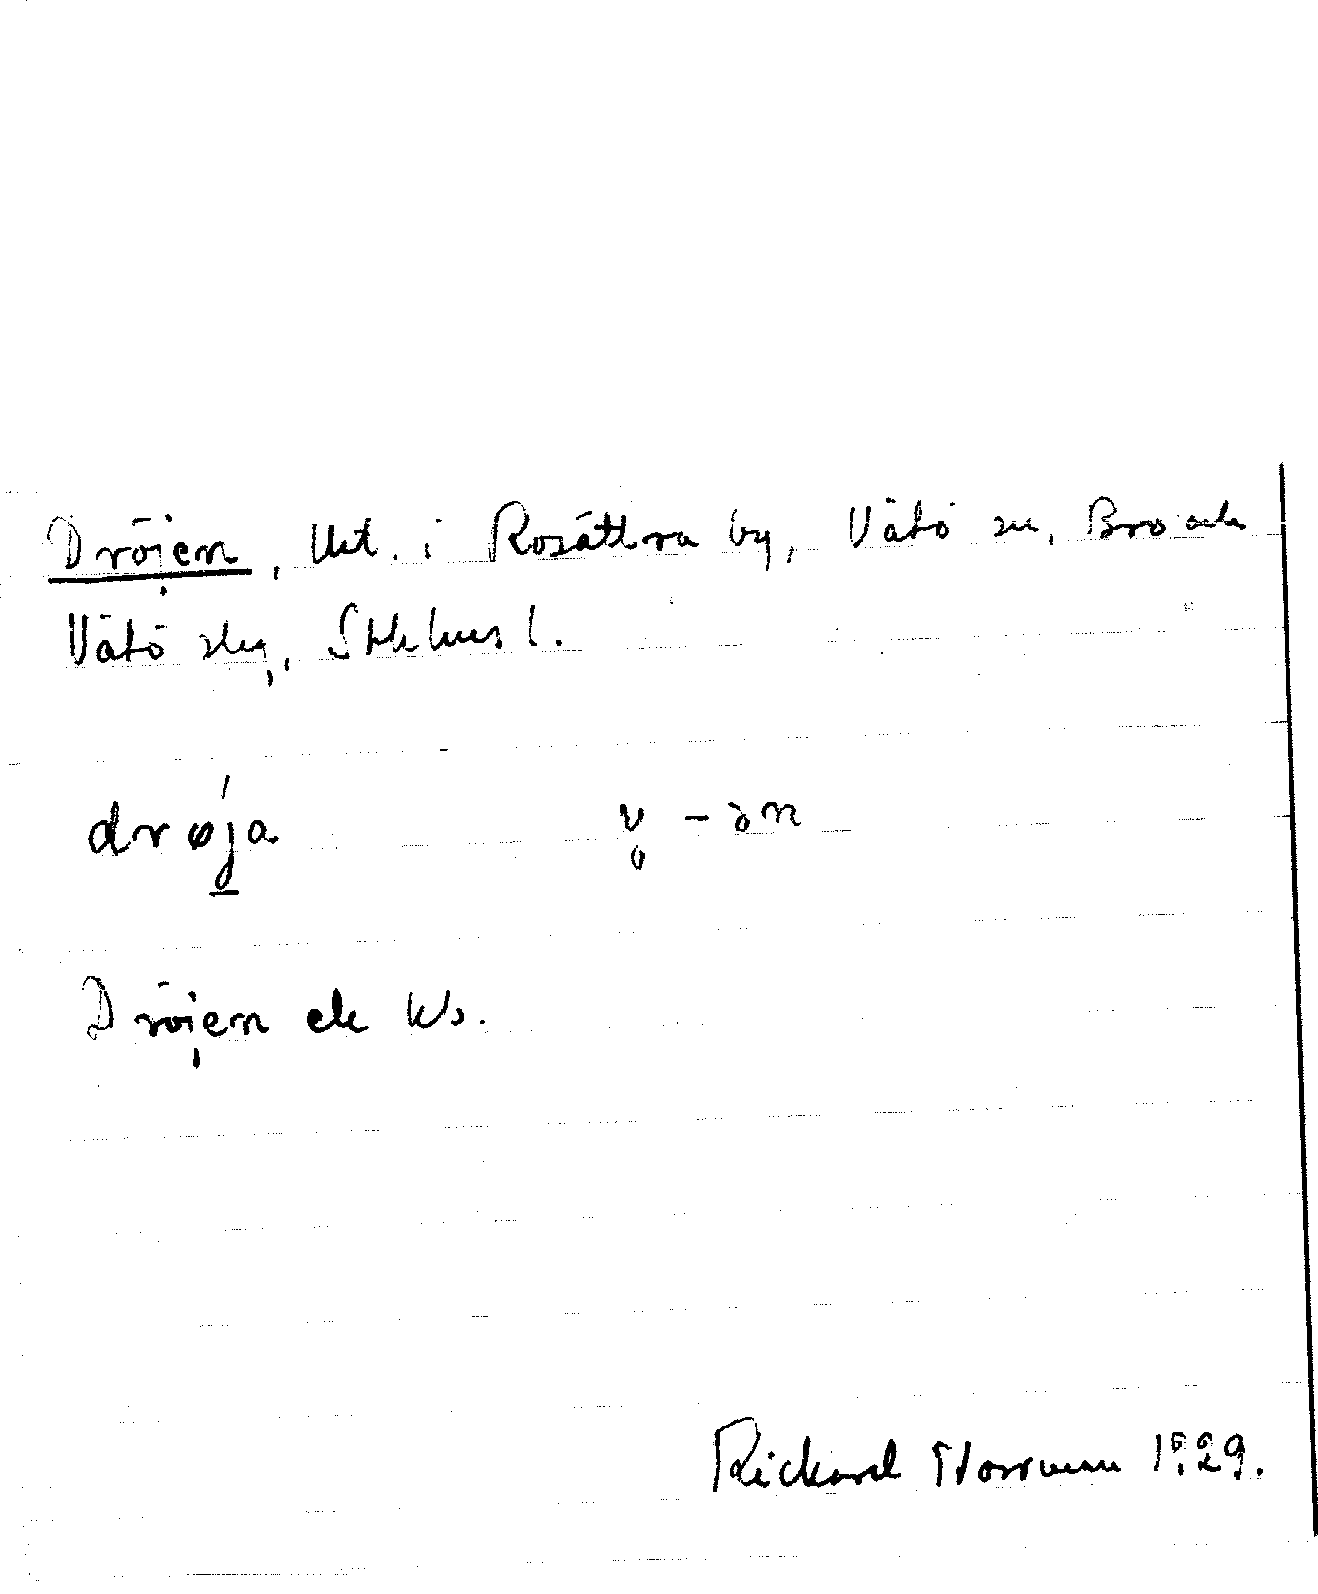 Dröjen, Ukt. i Rosättra by, Vätö sn, Bro och
Vätö slg, Sthlms l.
drøja v̥ -ən
Dröjen ek kb.
Rickard Norrman 1929.